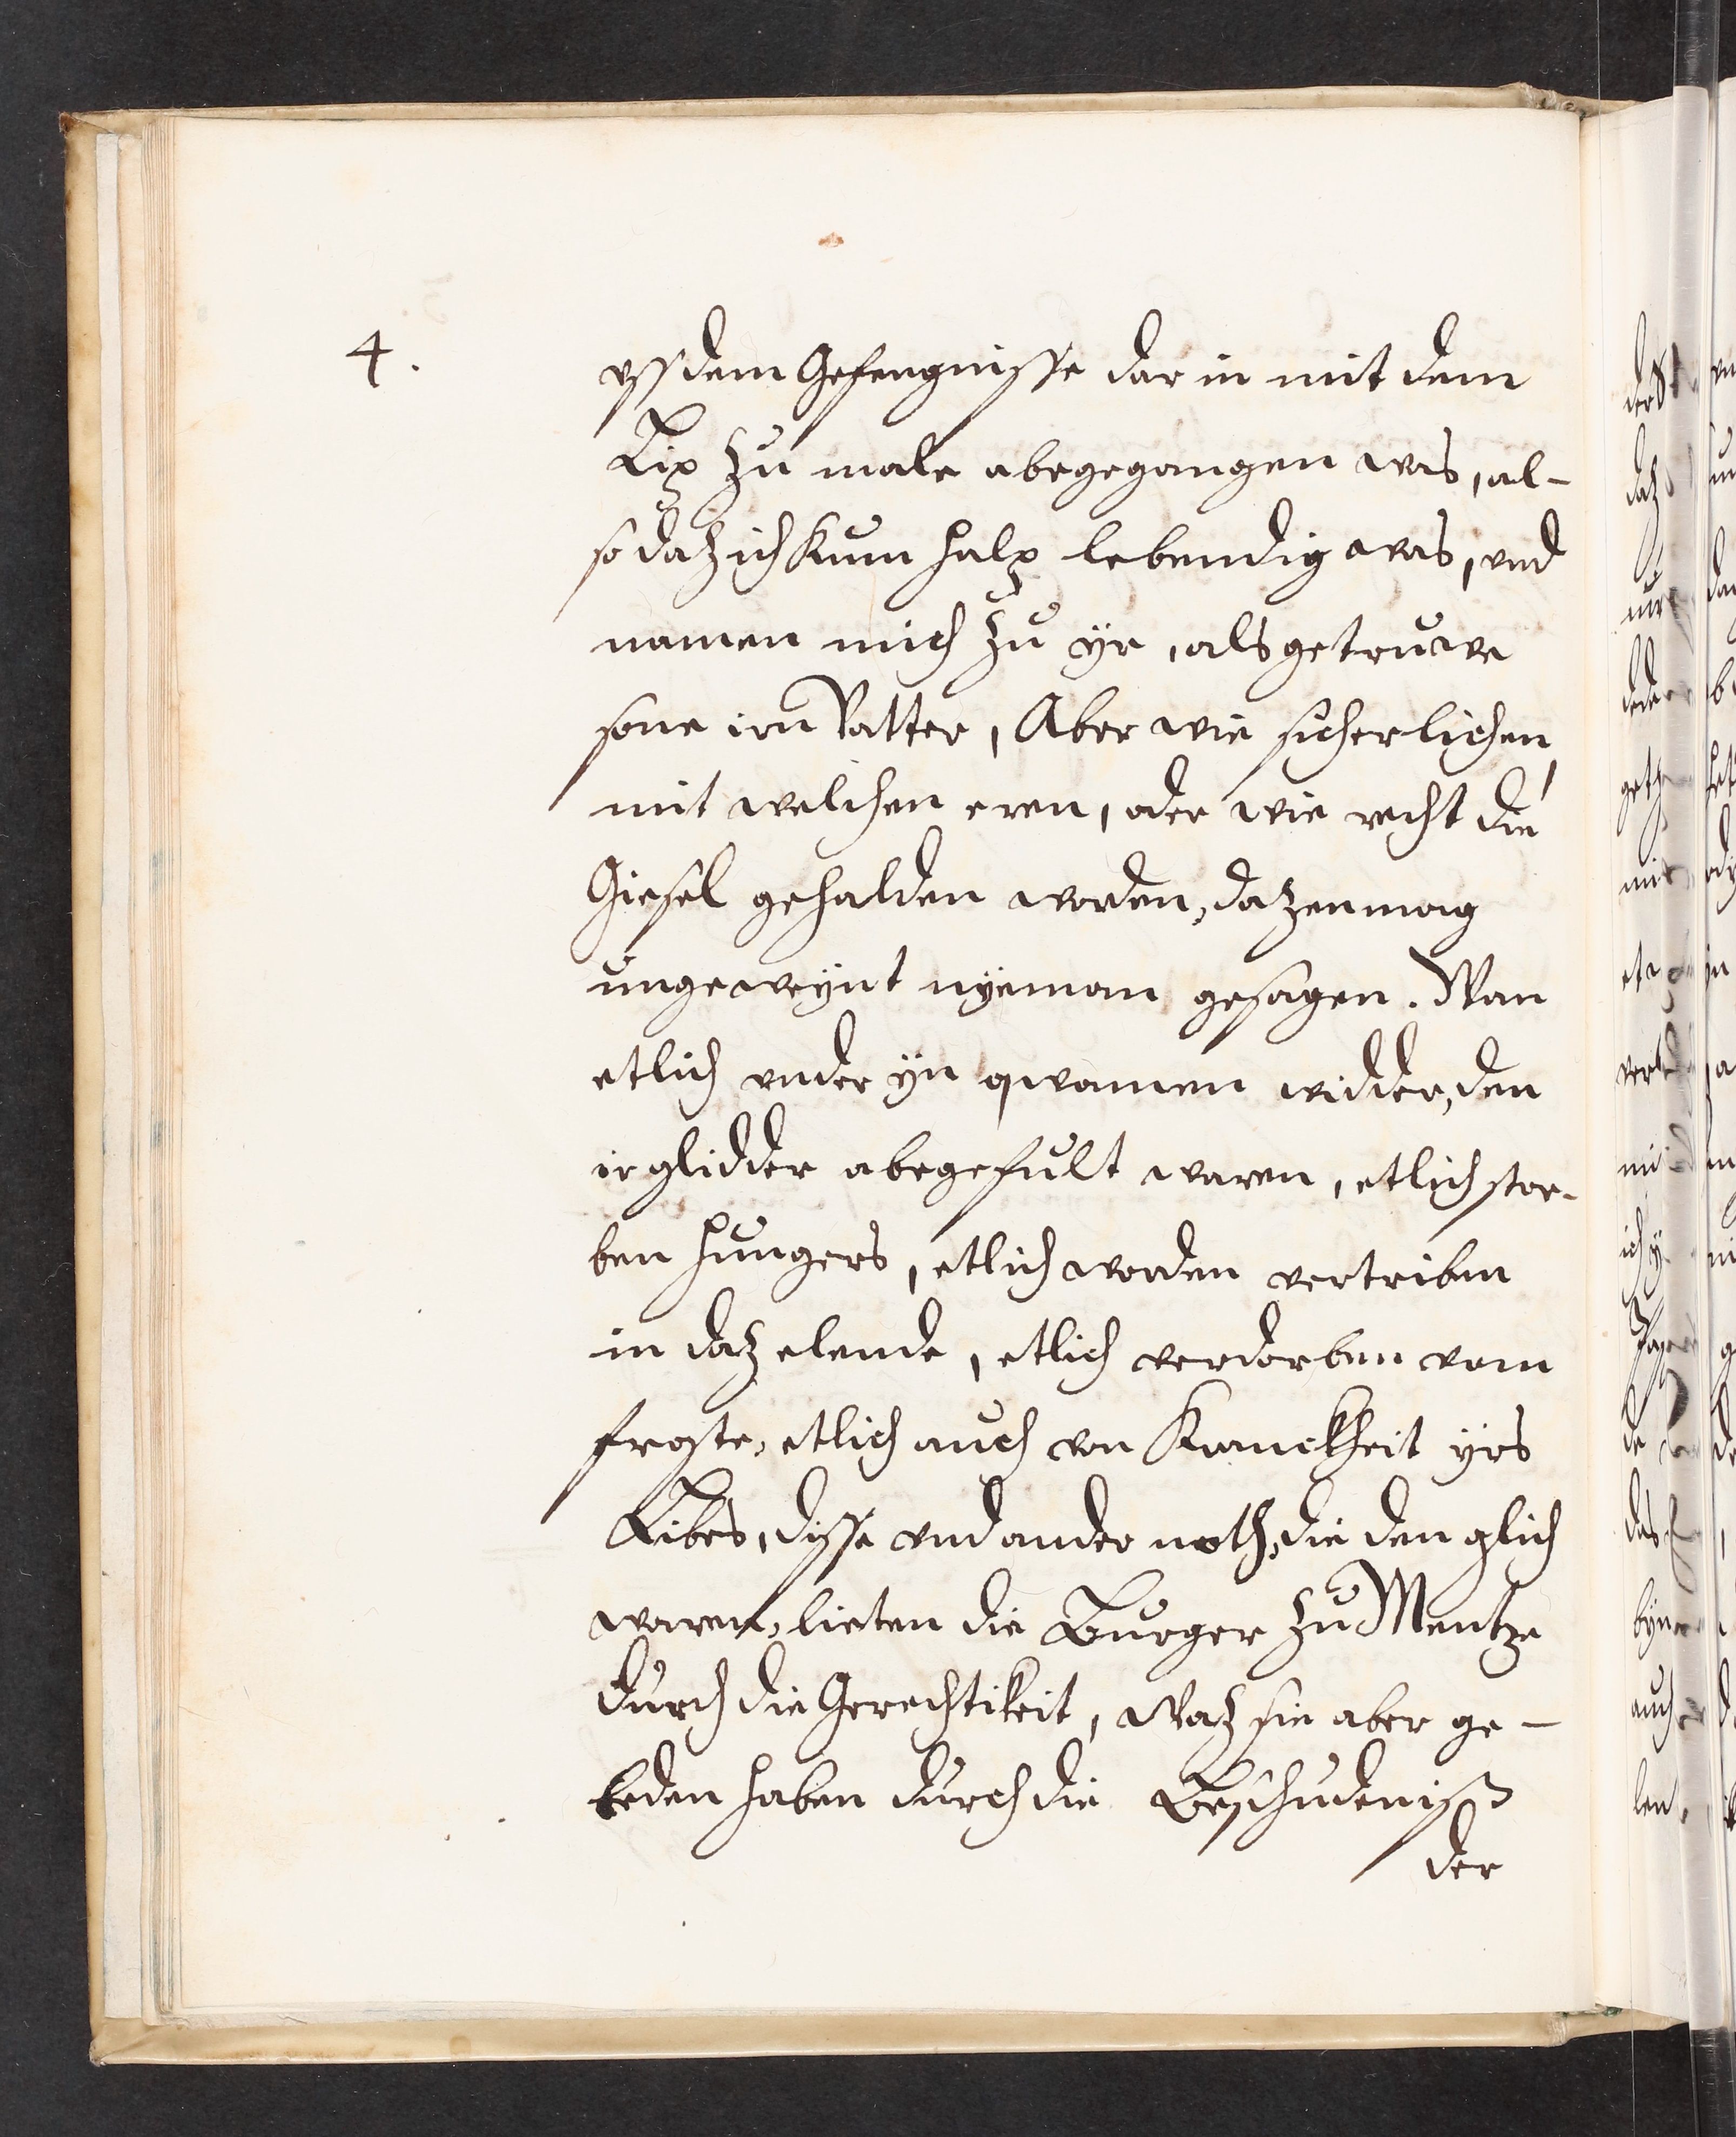 4.
vssdem Gefengnisse dar in mit dem
Lip zu male abegegangen was, al-
so datz ich kum halp lebendig was, und
namen mich zu yr, als getruwe
sone irn Vatter, Aber wie sicherlichen,
mit welichen eren, oder wie recht die
Giesel gehalden worden, datz en mag
ungeweynt nyeman gesagen. Wan
etlich under yn qwamen widder, den
ir glidder abegefult waren, etlich stor-
ben hungers, etlich worden vertriben
in datz elende, etlich verdorben vom
froste, etlich auch von Kranckheit yrs
Libes, disse und ander noth, die den glich
waren, lieten die Burger zu Mentze
durch die Gerechtikeit, Watz sie aber ge-
leden haben durch die Beschudeniß
der